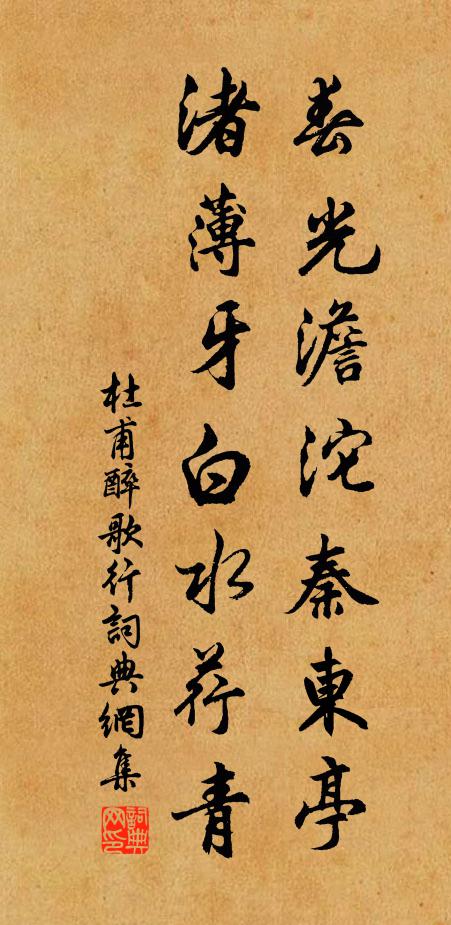 春光澹沱秦東亭
渚薄牙白水荇青
杜甫醉歌行詞典網集
詞典网印